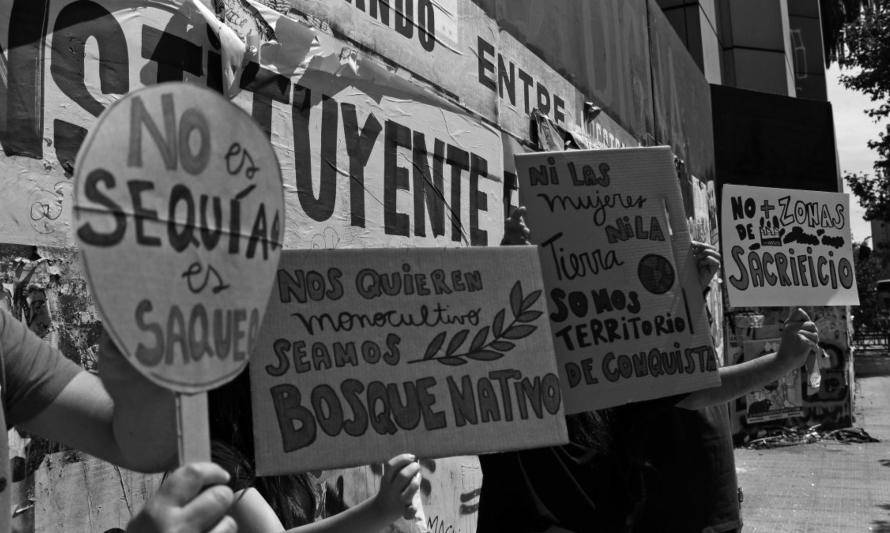 ANDO
ENTRE
NSTITUYENTE
NO
es
SEQUÍA
es
SAQUEO
NOS QUIEREN
monocultivo
SEAMOS
BOSQUE NATIVO
Ni LAS
mujeres
Ni LA
Tierra
SOMOS
TERRITORIO
DE CONQUISTA
NO + ZONAS
DE
SACRIFICIO